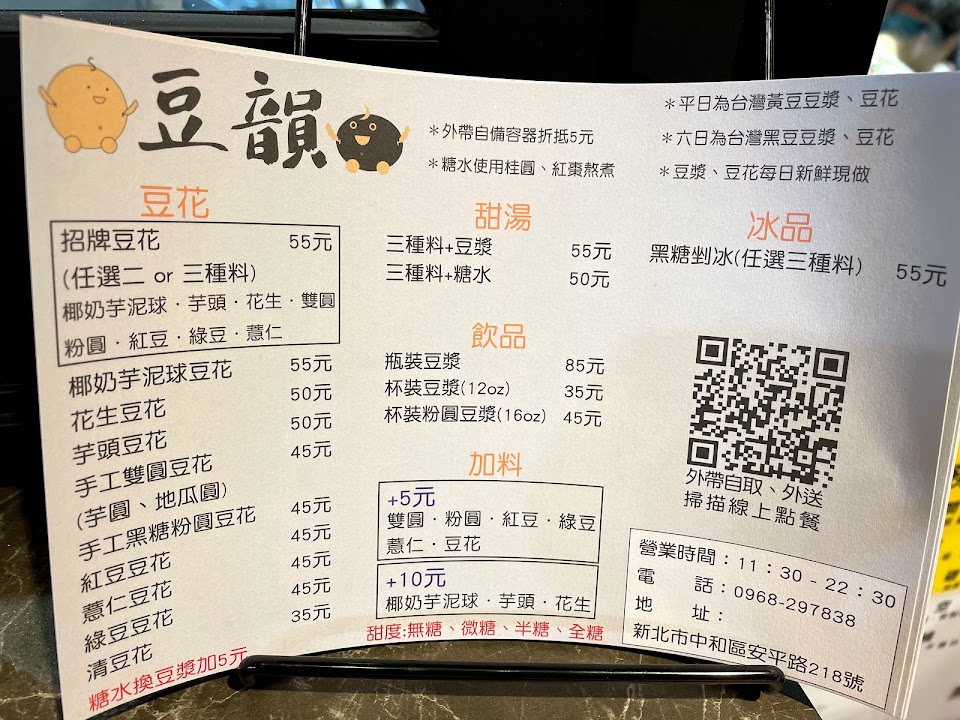 豆韻
＊外帶自備容器折抵5元
＊糖水使用桂圓、紅棗熬煮
＊平日為台灣黃豆豆漿、豆花
＊六日為台灣黑豆豆漿、豆花
＊豆漿、豆花每日新鮮現做
豆花
招牌豆花 55元
(任選二 or 三種料)
椰奶芋泥球．芋頭．花生．雙圓
粉圓．紅豆．綠豆．薏仁
椰奶芋泥球豆花 55元
花生豆花 50元
芋頭豆花 50元
手工雙圓豆花 45元
(芋圓、地瓜圓)
手工黑糖粉圓豆花 45元
紅豆豆花 45元
薏仁豆花 45元
綠豆豆花 45元
清豆花 35元
糖水換豆漿加5元
甜湯
三種料+豆漿 55元
三種料+糖水 50元
飲品
瓶裝豆漿 85元
杯裝豆漿(12oz) 35元
杯裝粉圓豆漿(16oz) 45元
加料
+5元
雙圓．粉圓．紅豆．綠豆
薏仁．豆花
+10元
椰奶芋泥球．芋頭．花生
甜度:無糖、微糖、半糖、全糖
冰品
黑糖剉冰(任選三種料) 55元
外帶自取、外送
掃描線上點餐
營業時間：11：30 - 22：30
電 話：0968-297838
地 址：
新北市中和區安平路218號